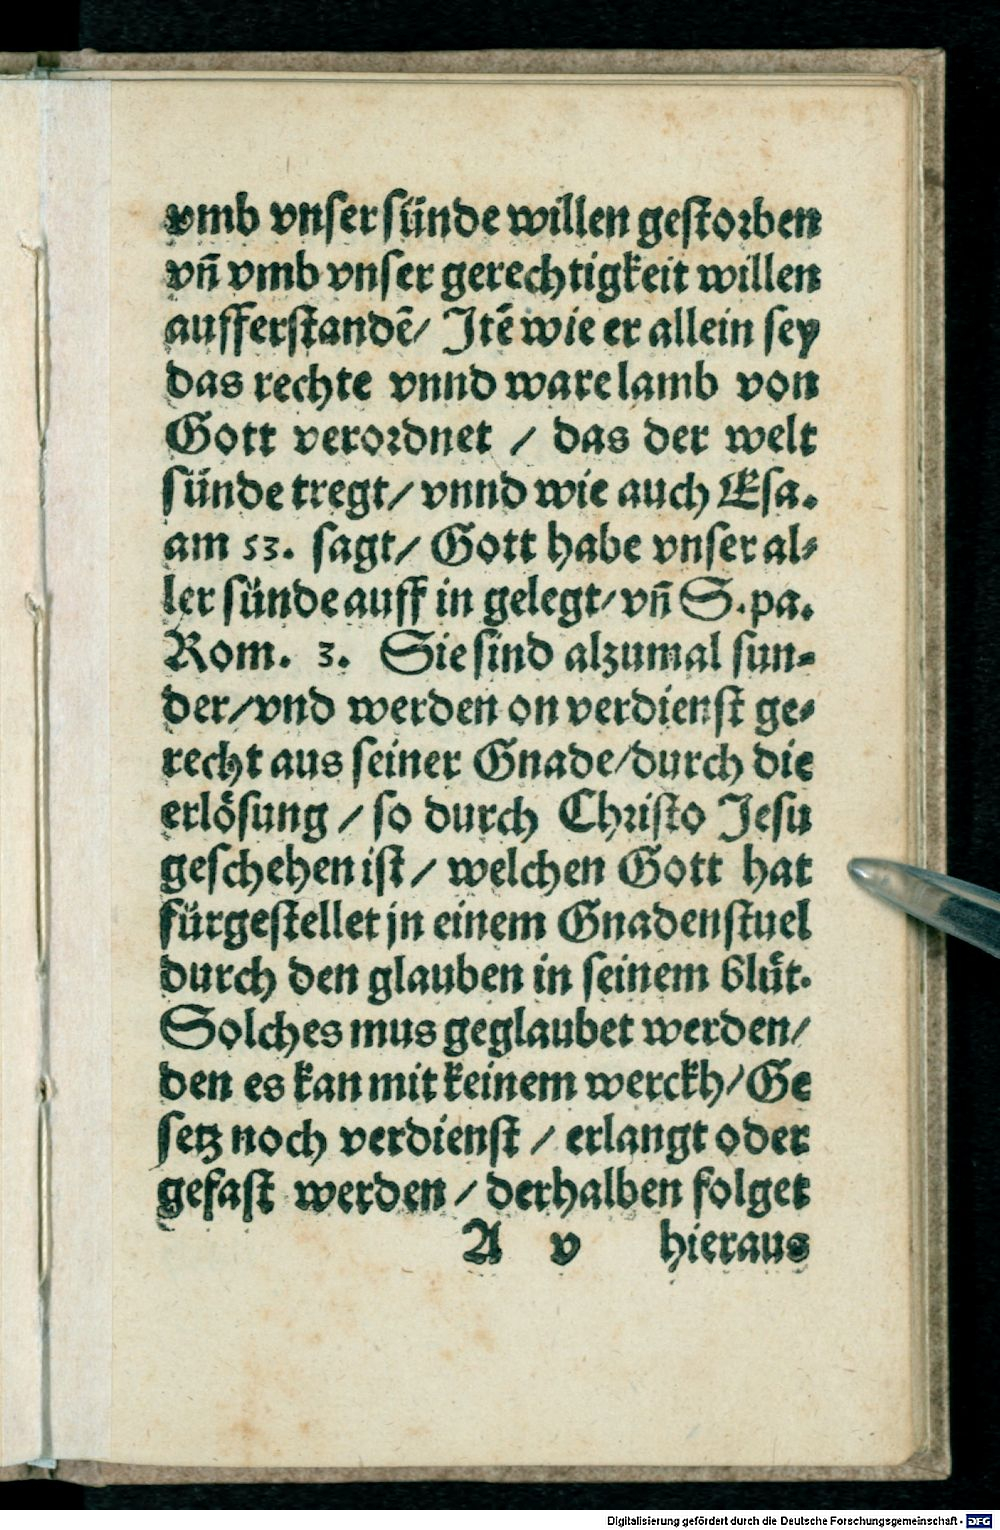 vmb vnser sünde willen gestorben
vñ vmb vnser gerechtigkeit willen
aufferstandē/ Jtē wie er allein sey
das rechte vnnd ware lamb von
Gott verordnet / das der welt
sünde tregt/ vnnd wie auch Esa.
am 53. sagt/ Gott habe vnser al⸗
ler sünde auff in gelegt/ vñ S. pa.
Rom. 3. Sie sind alzumal sun⸗
der/ vnd werden on verdienst ge⸗
recht aus seiner Gnade/ durch die
erlösung / so durch Christo Jesu
geschehen ist / welchen Gott hat
fürgestellet jn einem Gnadenstuel
durch den glauben in seinem blůt.
Solches mus geglaubet werden/
den es kan mit keinem werckh/ Ge
setz noch verdienst / erlangt oder
gefast werden / derhalben folget
A v hieraus
Digitalisierung gefördert durch die Deutsche Forschungsgemeinschaft - DFG